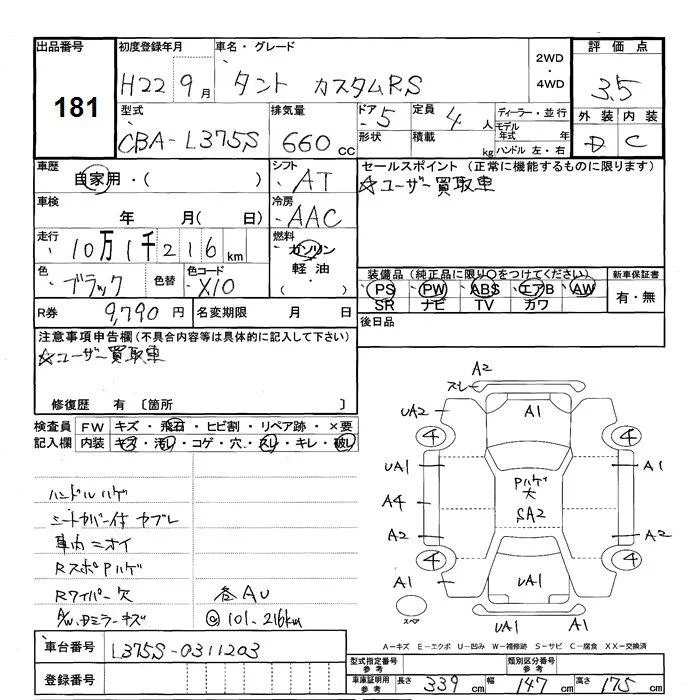 出品番号
181
初度登録年月
H22 9月
車名・グレード
タント カスタムRS
2WD
・
4WD
評価点
3.5
外装 内装
D C
型式
CBA-L375S
排気量
660 cc
ドア
5
定員
4人
形状
積載
kg
ディーラー・並行
モデル
年式 年
ハンドル 左・右
車歴
自家用・( )
シフト
AT
セールスポイント (正常に機能するものに限ります)
☆ユーザー買取車
車検
年 月( 日)
冷房
AAC
走行
10万1千216km
燃料
ガソリン
軽油
( ・ )
色
ブラック
色替
色コード
X10
装備品 (純正品に限り○をつけてください)
PS PW ABS エアB AW
SR ナビ TV カワ
新車保証書
有・無
R券
9,790円
名変期限 月 日
後日品
注意事項申告欄(不具合内容等は具体的に記入して下さい)
☆ユーザー買取車
修復歴 有 〔箇所 〕
検査員
記入欄
FW キズ・飛石・ヒビ割・リペア跡・×要
内装 キズ・汚れ・コゲ・穴・スレ・キレ・破れ
ハンドルハゲ
シートカバー付 ヤブレ
車内ニオイ
RスポPハゲ
Rワイパー欠
A/W、Dミラーキズ
各AU
@101.216km
A2
スレ
UA2
A1
4
4
UA1
A1
Pハゲ
大
A4
SA2
A2
A2
4
4
A1
UA1
スペア
UA1
A1
A-キズ E-エクボ U-凹み W-補修跡 S-サビ C-腐食 XX-交換済
車台番号
L375S-0311203
登録番号
型式指定番号
参考
類別区分番号
参考
車庫証明用
参考
長さ 339cm
幅 147cm
高さ 175cm